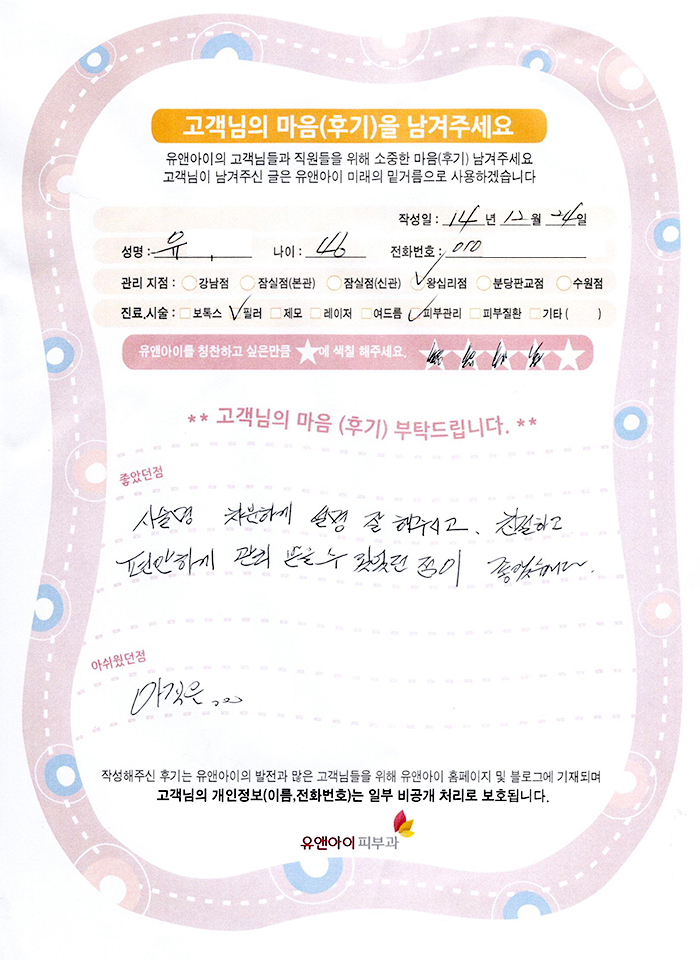 고객님의 마음(후기)을 남겨주세요
유앤아이의 고객님들과 직원들을 위해 소중한 마음(후기) 남겨주세요
고객님이 남겨주신 글은 유앤아이 미래의 밑거름으로 사용하겠습니다
작성일 : 14 년 12 월 24 일
성명 : 유 . 나이 : 46 전화번호 : 010
관리 지점 : 강남점 잠실점(본관) 잠실점(신관) 왕십리점 분당판교점 수원점
진료.시술 : 보톡스 필러 제모 레이저 여드름 피부관리 피부질환 기타 ( )
유앤아이를 칭찬하고 싶은만큼 ★에 색칠 해주세요.
** 고객님의 마음 (후기) 부탁드립니다. **
좋았던점
차분하게 설명 잘 해주시고. 친절하고
편안하게 관리 받을 수 있었던 점이 좋았습니다.
아쉬웠던점
아직은...
작성해주신 후기는 유앤아이의 발전과 많은 고객님들을 위해 유앤아이 홈페이지 및 블로그에 기재되며
고객님의 개인정보(이름,전화번호)는 일부 비공개 처리로 보호됩니다.
유앤아이 피부과